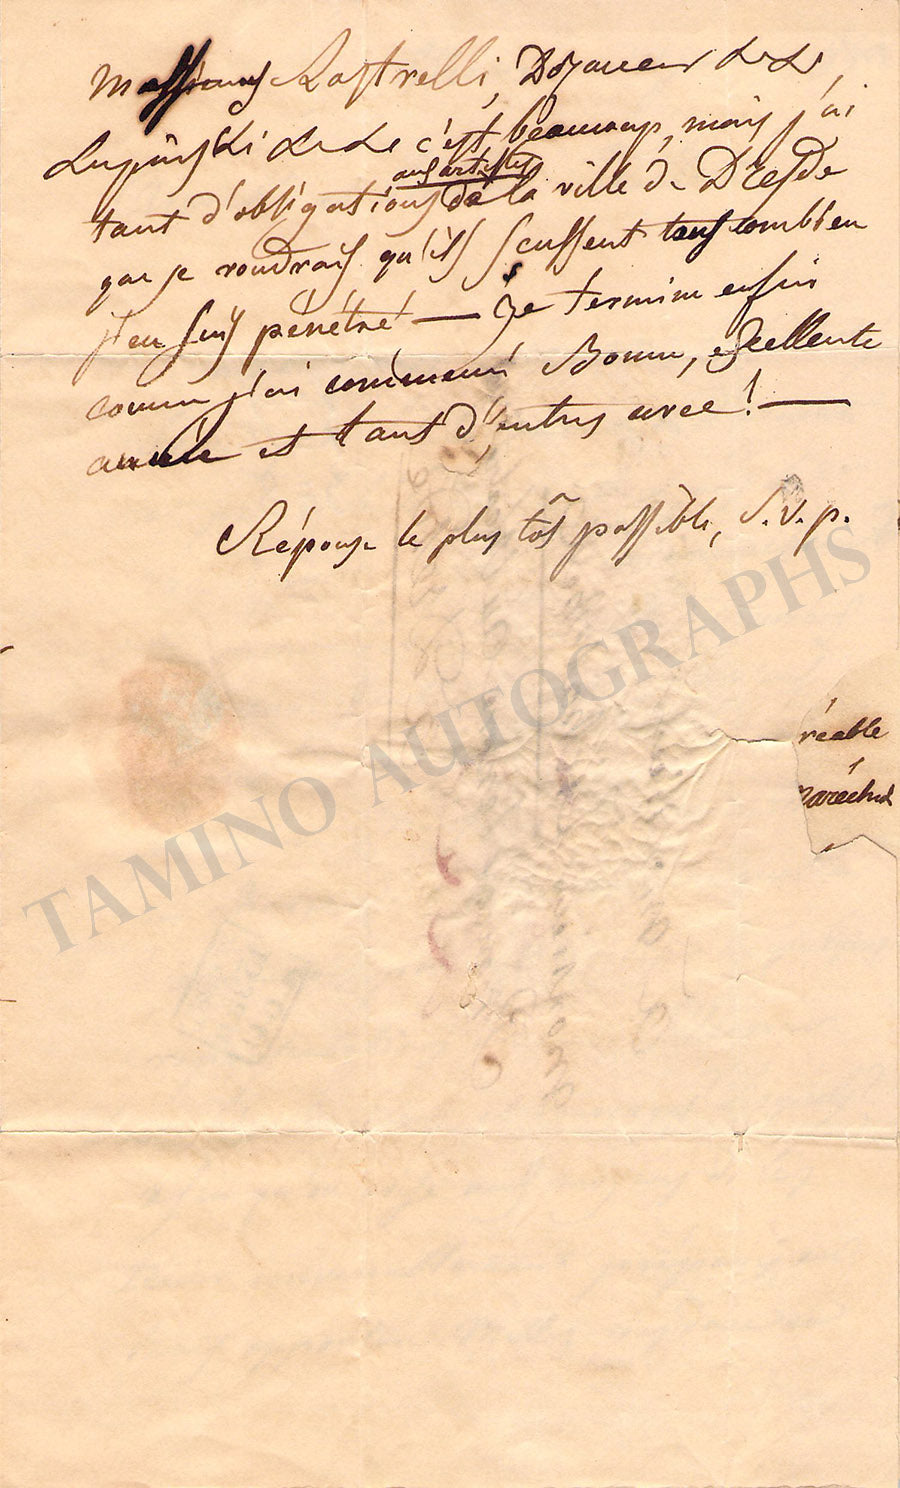 Messieurs Rastrelli, Dozaueur &c &c
Lupinski &c &c c'est beaucoup, mais j'ai
aux artistes
tant d'obligations de la ville de Dresde
que je voudrais qu'ils scussent tous combien
j'en suis pénétré — Je termine enfin
comme j'ai commencé Bonne, excellente
année et tant d'autres avec! —
Réponse le plus tôt possible, S.v.p.
réable
maréchal
TAMINO AUTOGRAPHS